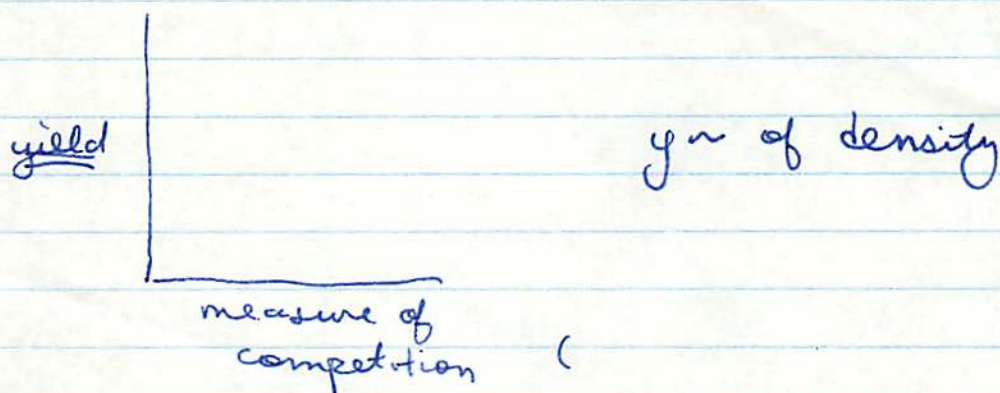 yield
of density
measure of
competition (